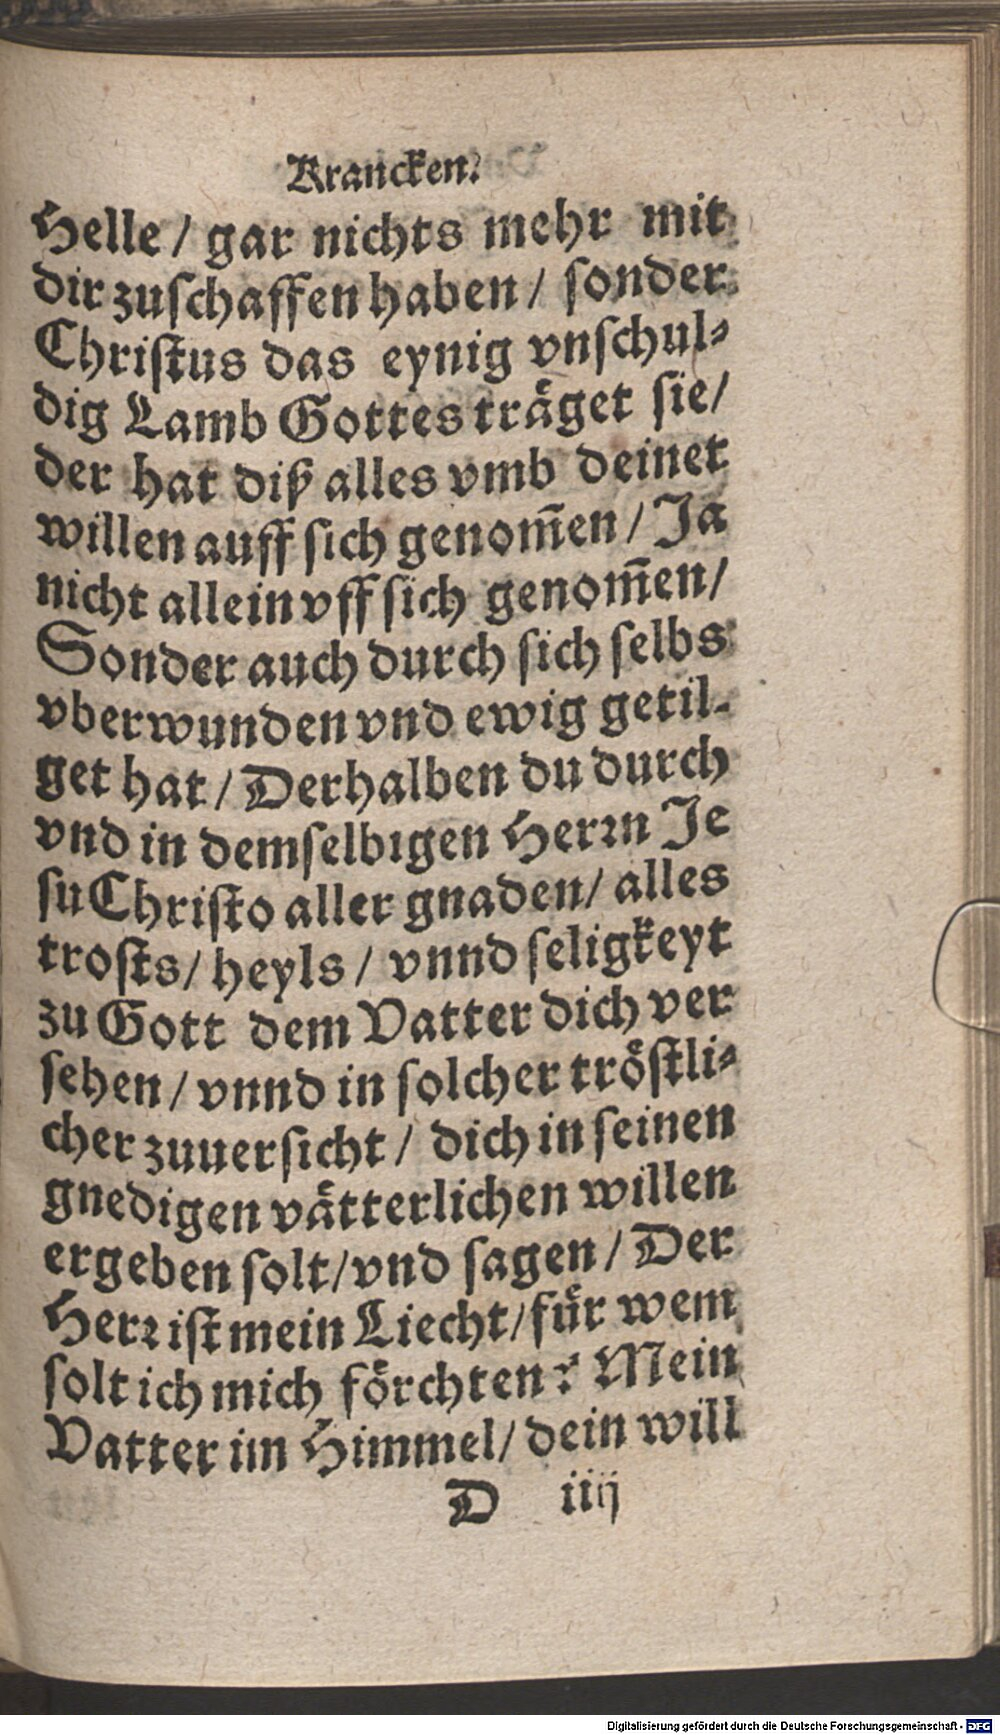 Krancken.
Helle / gar nichts mehr mit
dir zuſchaffen haben / ſonder
Chriſtus das eynig vnſchul⸗
dig Lamb Gottes träget ſie /
der hat diß alles vmb deinet
willen auff ſich genom̃en / Ja
nicht allein vff ſich genom̃en /
Sonder auch durch ſich ſelbs
vberwunden vnd ewig getil⸗
get hat / Derhalben du durch
vnd in demſelbigen Herꝛn Je
ſu Chriſto aller gnaden / alles
troſts / heyls / vnnd ſeligkeyt
zu Gott dem Vatter dich ver
ſehen / vnnd in ſolcher tröſtli⸗
cher zuuerſicht / dich in ſeinen
gnedigen vätterlichen willen
ergeben ſolt / vnd ſagen / Der
Herꝛ iſt mein Liecht / für wem
ſolt ich mich förchten? Mein
Vatter im Himmel / dein will
D iiij
Digitalisierung gefördert durch die Deutsche Forschungsgemeinschaft - DFG